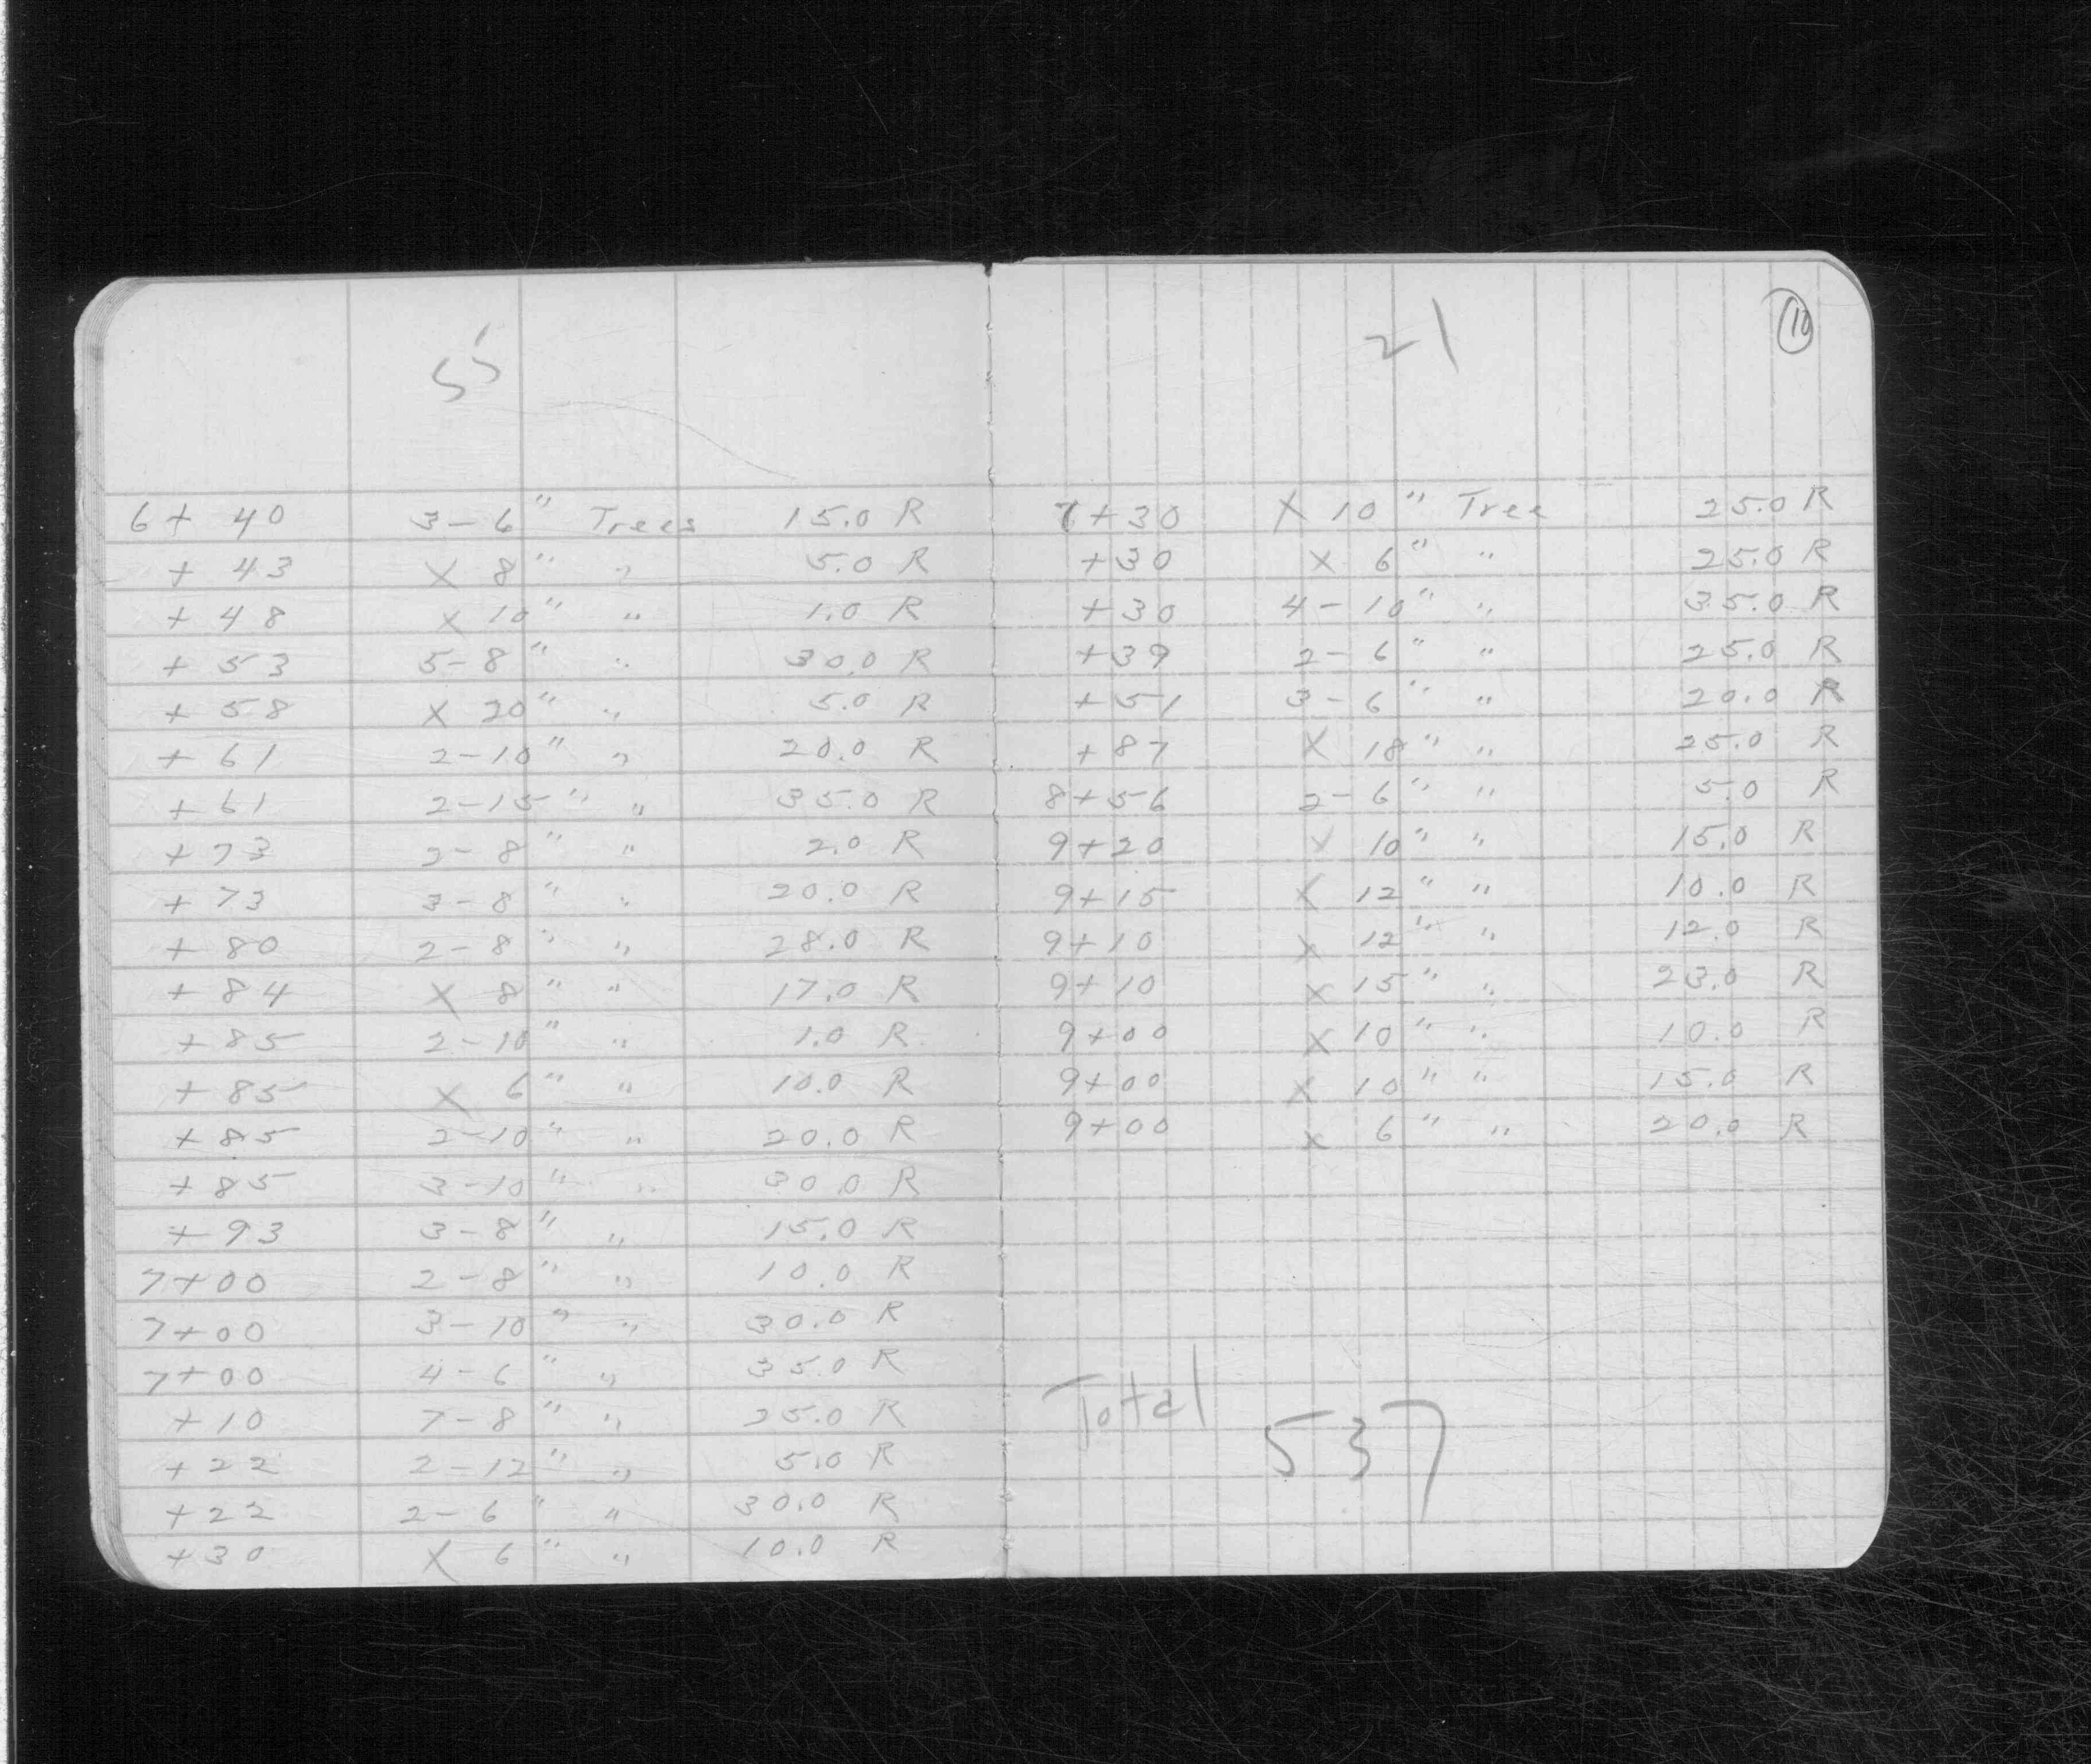 55
6+ 40 3-6" Trees 15.0 R
+ 43 X 8" " 5.0 R
+ 48 X 10" " 1.0 R
+ 53 5-8" " 30.0 R
+ 58 X 20" " 5.0 R
+ 61 2-10" " 20.0 R
+ 61 2-15" " 35.0 R
+ 73 2-8" " 2.0 R
+ 73 3-8" " 20.0 R
+ 80 2-8" " 28.0 R
+ 84 X 8" " 17.0 R
+ 85 2-10" " 1.0 R
+ 85 X 6" " 10.0 R
+ 85 2-10" " 20.0 R
+ 85 3-10" " 30.0 R
+ 93 3-8" " 15.0 R
7+00 2-8" " 10.0 R
7+00 3-10" " 30.0 R
7+00 4-6" " 35.0 R
+10 7-8" " 25.0 R
+22 2-12" " 5.0 R
+22 2-6" " 30.0 R
+30 X 6" " 10.0 R
21
10
7+30 X 10" Tree 25.0 R
+30 X 6" " 25.0 R
+30 4-10" " 35.0 R
+39 2-6" " 25.0 R
+51 3-6" " 20.0 R
+87 X 18" " 25.0 R
8+56 2-6" " 5.0 R
9+20 X 10" " 15.0 R
9+15 X 12" " 10.0 R
9+10 X 12" " 12.0 R
9+10 X 15" " 23.0 R
9+00 X 10" " 10.0 R
9+00 X 10" " 15.0 R
9+00 X 6" " 20.0 R
Total 537